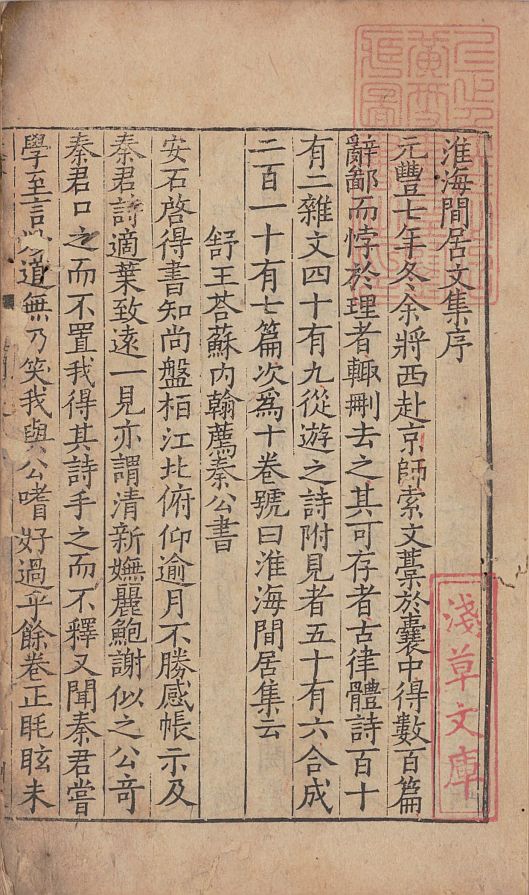 淮海閒居文集序
元豐七年冬余將西赴京師索文藁於囊中得數百篇
辭鄙而悖於理者輙刪去之其可存者古律體詩百十
有二雜文四十有九從遊之詩附見者五十有六合成
二百一十有七篇次爲十卷號曰淮海閒居集云
舒王荅蘇內翰薦秦公書
安石啓得書知尚盤桓江北俯仰逾月不勝感悵示及
秦君詩適葉致遠一見亦謂清新嫵麗鮑謝似之公竒
秦君口之而不置我得其詩手之而不釋又聞秦君嘗
學至言玅道無乃笑我與公嗜好過乎餘卷正眊眩未
淺草文庫